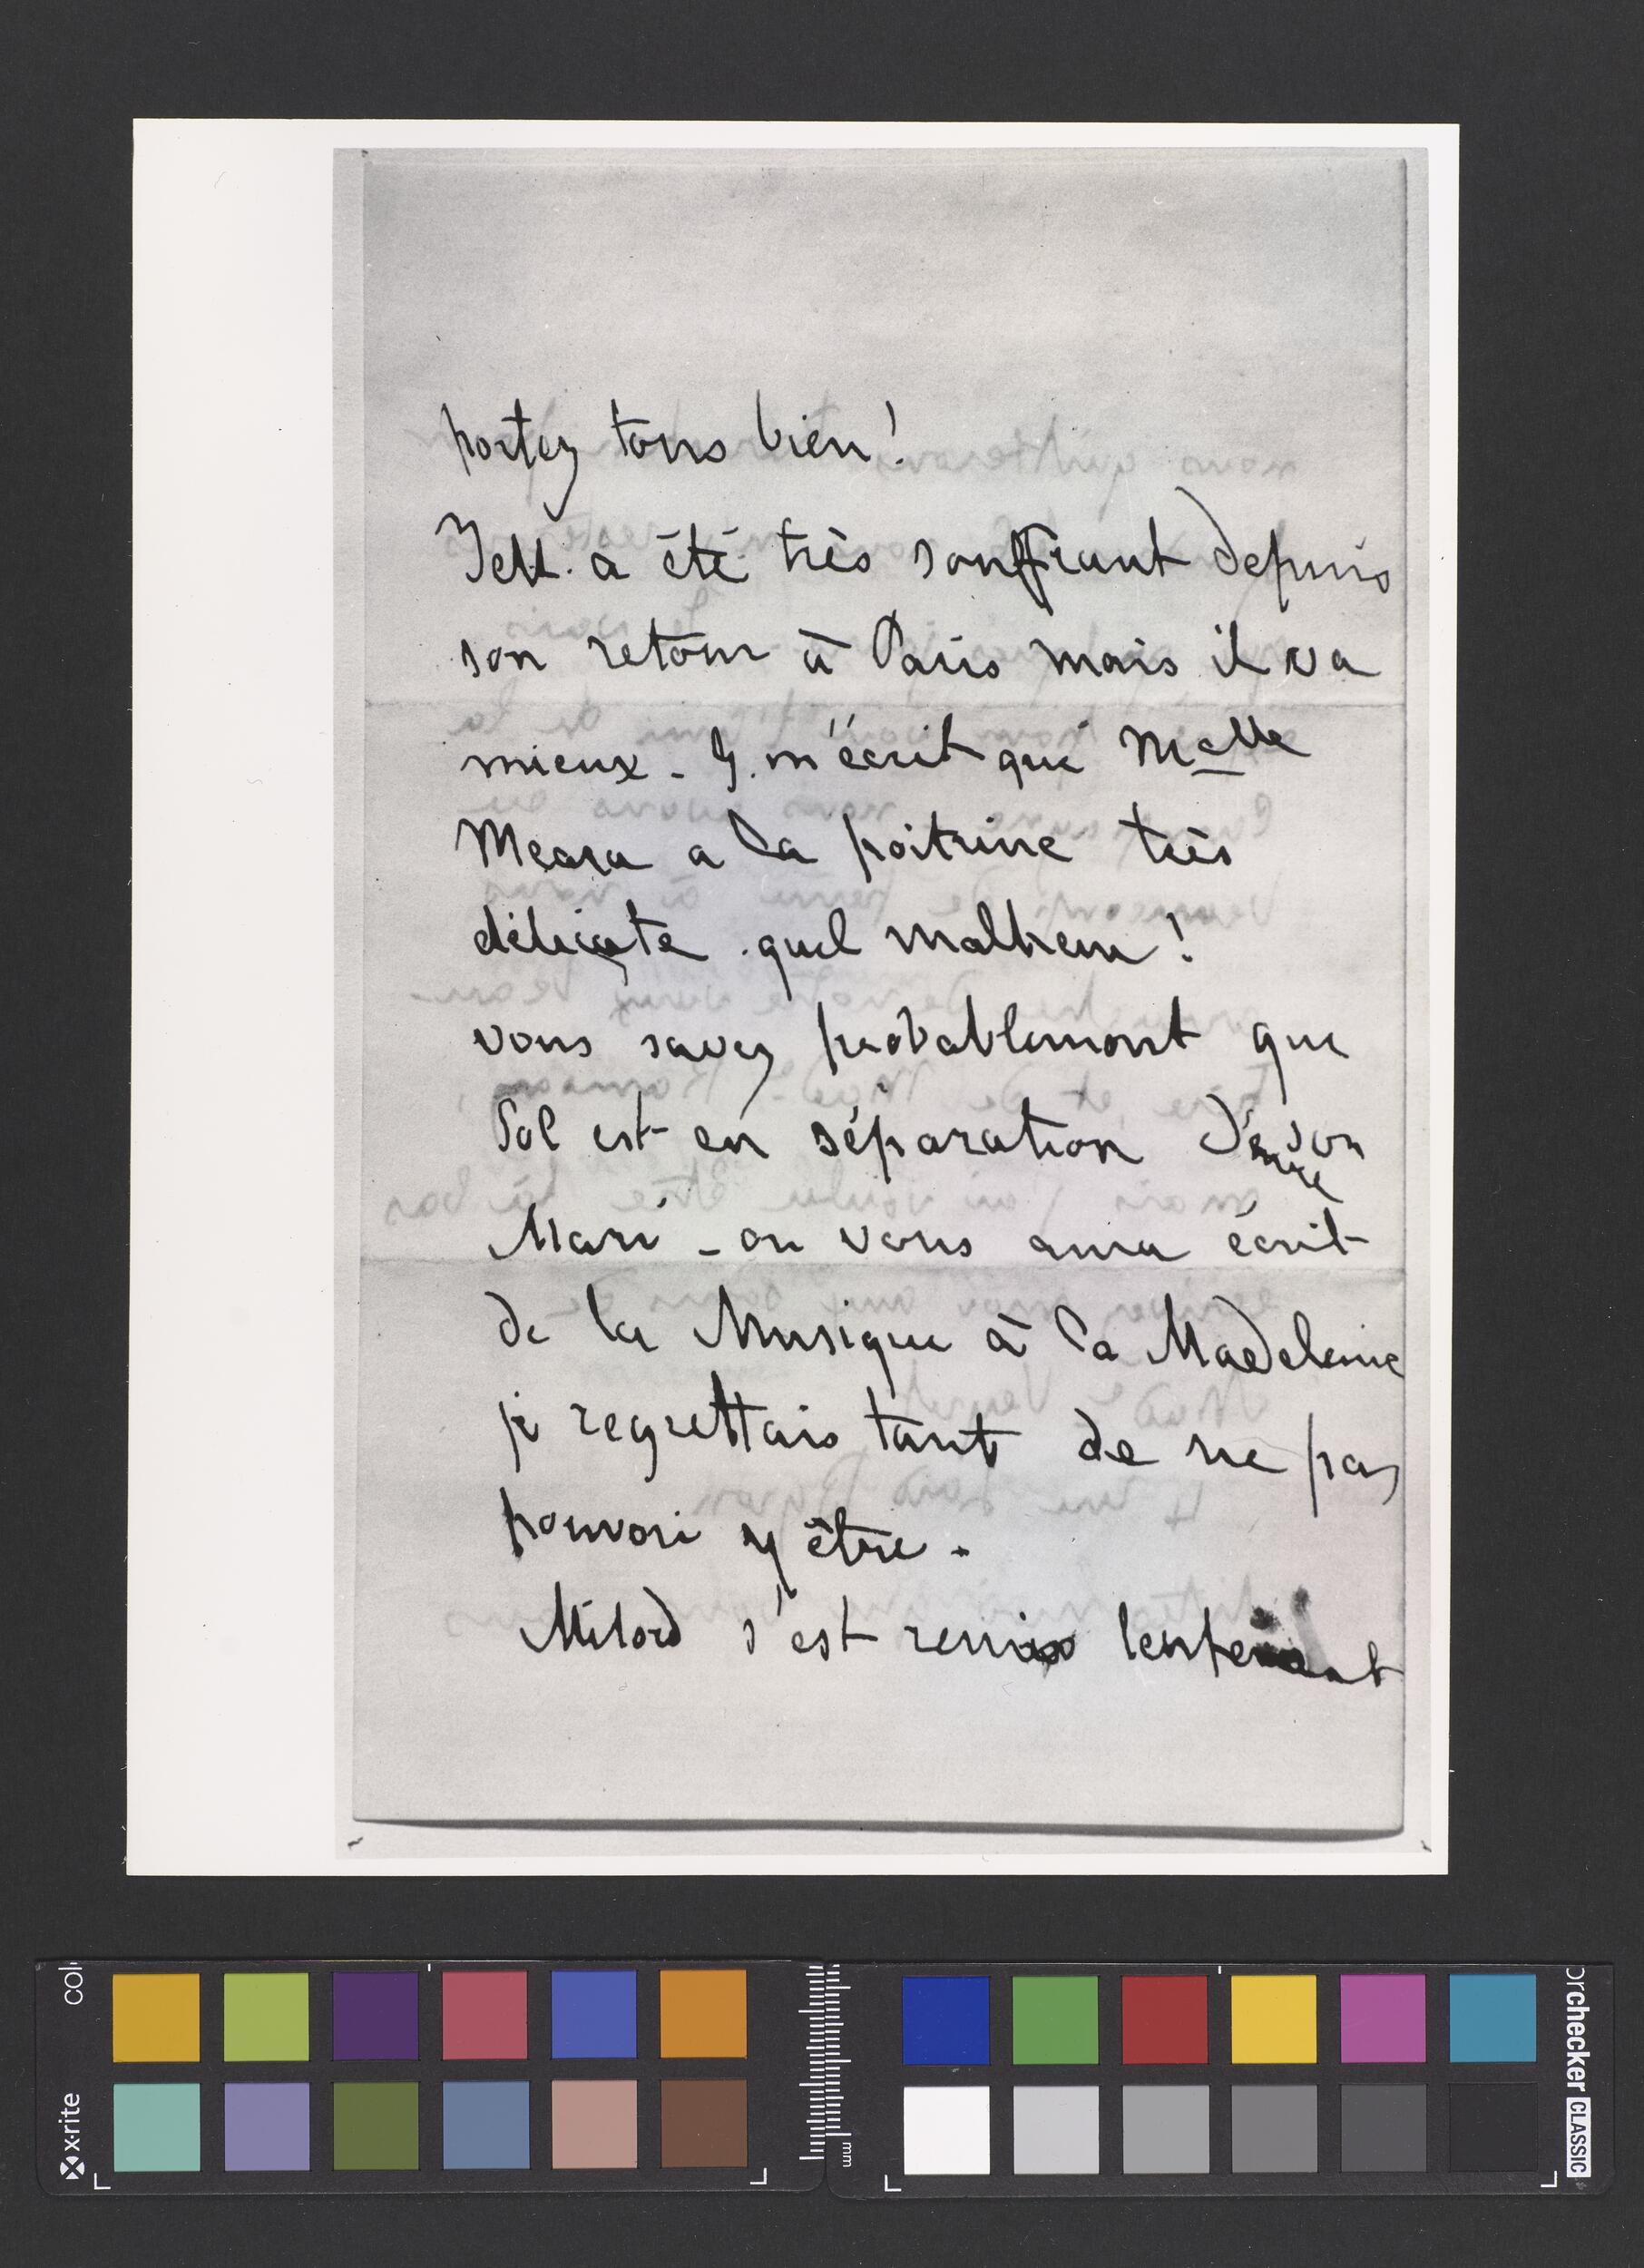 portez tous bien!
Jell. a été très souffrant depuis
son retour à Paris mais il va
mieux - Y. m'écrit que Melle
Meara a la poitrine très
délicate. quel malheur!
vous savez probablement que
Sol est en séparation d'avec son
Mari - on vous aura écrit
de la Musique à la Madeleine
je regrettais tant de ne pas
pouvoir y être -
Milord s'est remis lentement
colo
x-rite
mm
orchecker CLASSIC